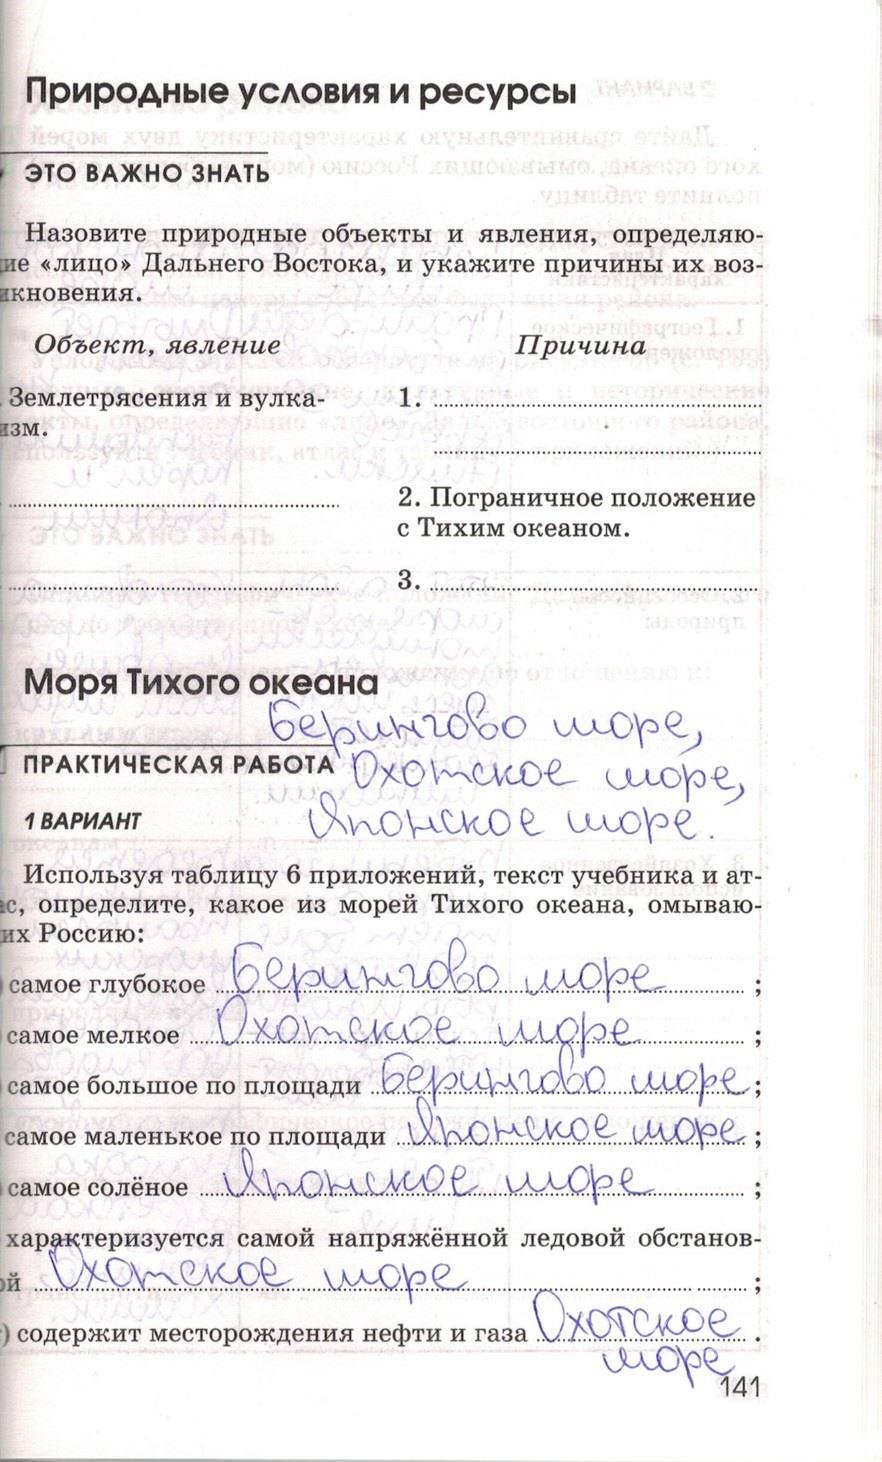 Природные условия и ресурсы
ЭТО ВАЖНО ЗНАТЬ
Назовите природные объекты и явления, определяю-
ие «лицо» Дальнего Востока, и укажите причины их воз-
икновения.
Объект, явление Причина
Землетрясения и вулка- 1.
изм.
2. Пограничное положение
с Тихим океаном.
3.
Моря Тихого океана
Берингово море,
ПРАКТИЧЕСКАЯ РАБОТА Охотское море,
1 ВАРИАНТ Японское море.
Используя таблицу 6 приложений, текст учебника и ат-
ас, определите, какое из морей Тихого океана, омываю-
их Россию:
самое глубокое Берингово море ;
самое мелкое Охотское море ;
самое большое по площади Берингово море ;
самое маленькое по площади Японское море ;
самое солёное Японское море ;
характеризуется самой напряжённой ледовой обстанов-
ой Охотское море ;
) содержит месторождения нефти и газа Охотское .
море
141